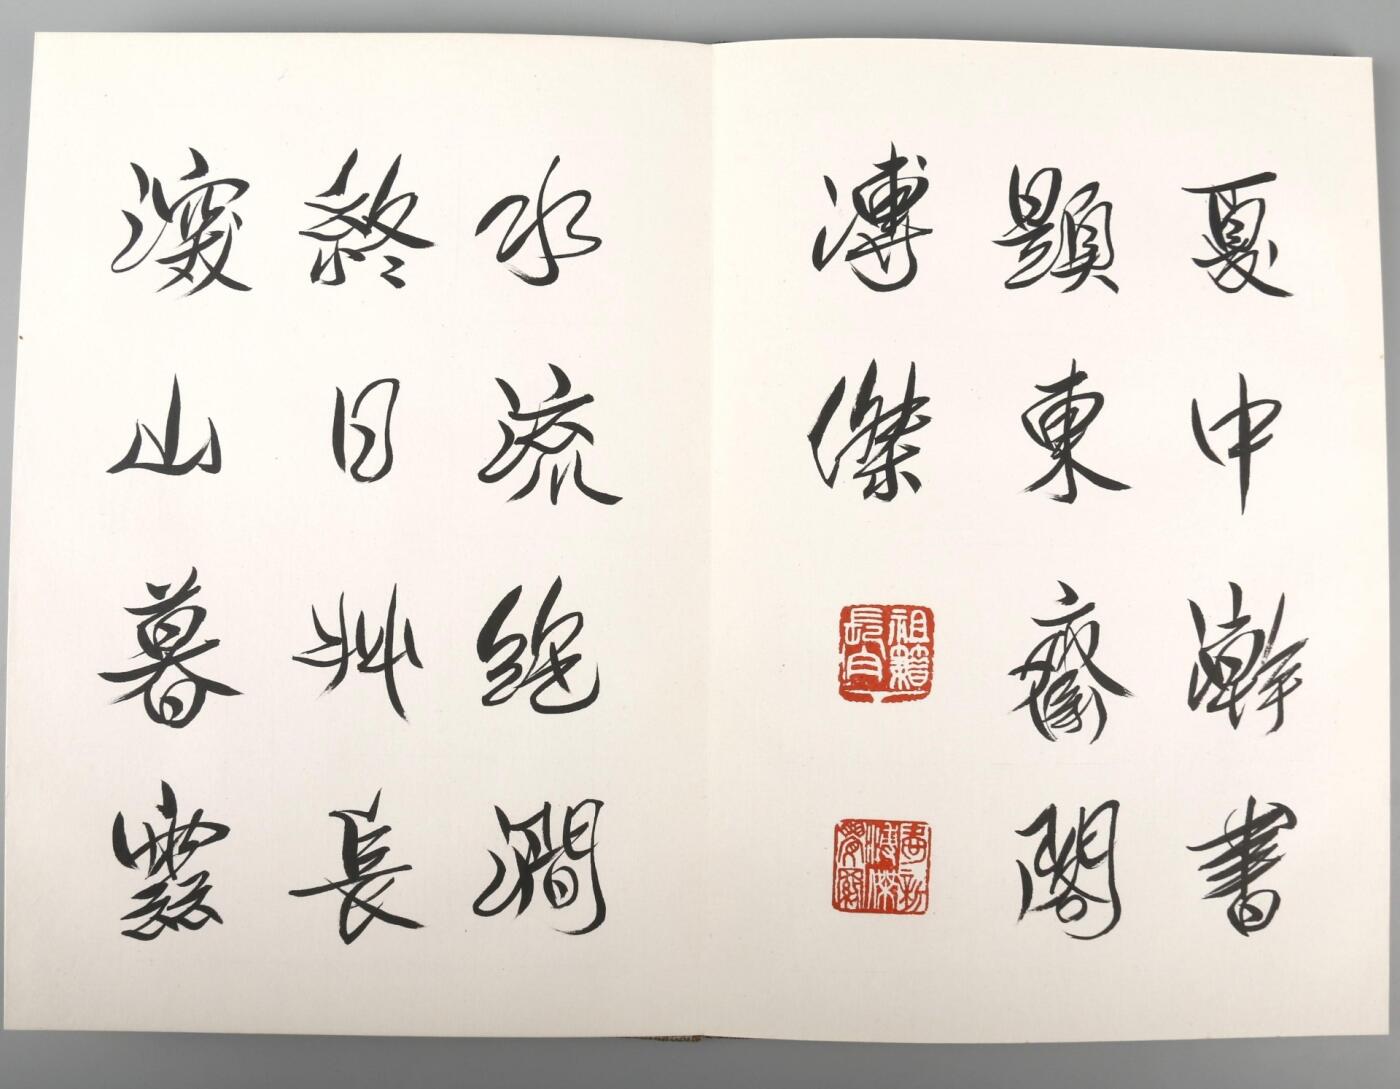 夏中瀚書
題東齋閣
溥傑
祖籍
長白
水流絕澗
終日艸長
深山暮雲